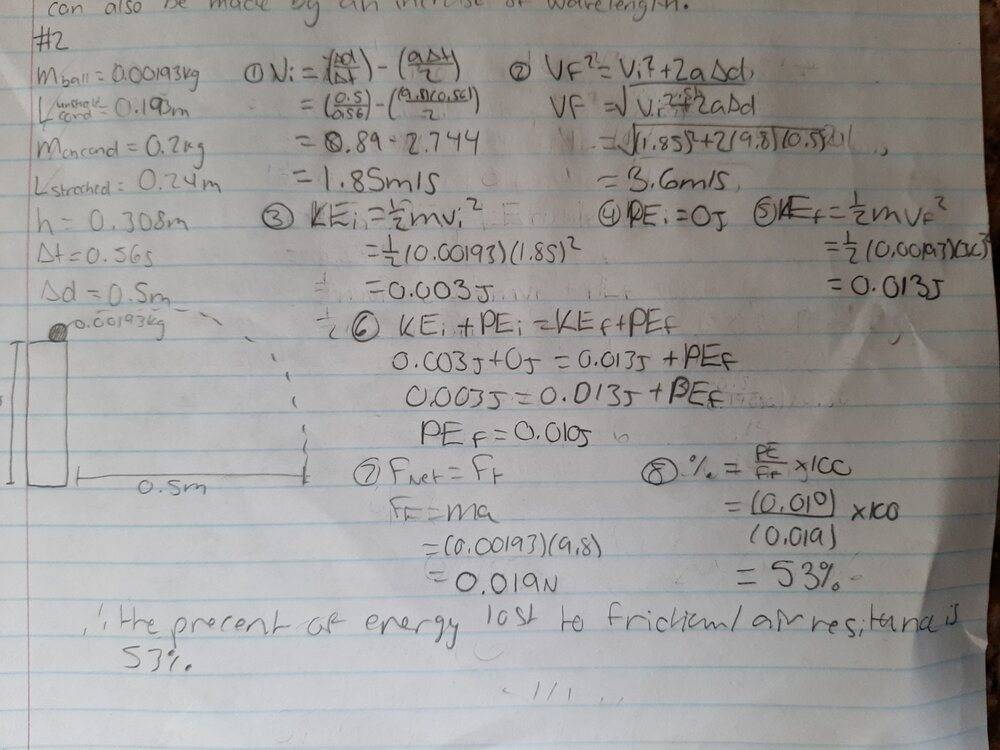 can also be made by an increase of wavelength.
#2
mball = 0.00193kg
Lunstretched cord = 0.193m
Lstretched = 0.24m
h = 0.308m
Δt = 0.56s
Δd = 0.5m
① Vi = (Δd/Δt) - (aΔt/2)
= (0.5/0.56) - ((9.8)(0.56)/2)
= 0.89 - 2.744
= 1.85m/s
② VF² = Vi² + 2aΔd
VF = √Vi² + 2aΔd
= √(1.85)² + 2(9.8)(0.5)
= 3.6m/s
③ KEi = ½mvi²
= ½(0.00193)(1.85)²
= 0.003J
④ PEi = 0J
⑤ KEf = ½mVF²
= ½(0.00193)
= 0.013J
0.00193kg
0.5m
⑥ KEi + PEi = KEf + PEf
0.003J + 0J = 0.013J + PEf
0.003J = 0.013J + PEf
PEf = 0.010J
⑦ FNet = Ff
Ff = ma
= (0.00193)(9.8)
= 0.019N
⑧ % = PE/Ff x100
= (0.010)/(0.019) x100
= 53%
∴ the precent of energy lost to friction/air resitana is
53%.